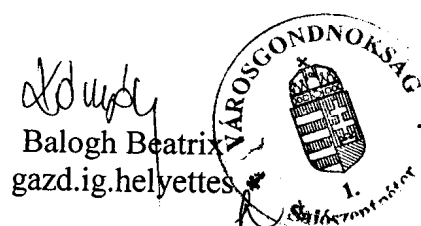 Balogh Beatrix
gazd.ig.helyettes
VÁROSGONDNOKSÁG
1.
Sajószentpéter